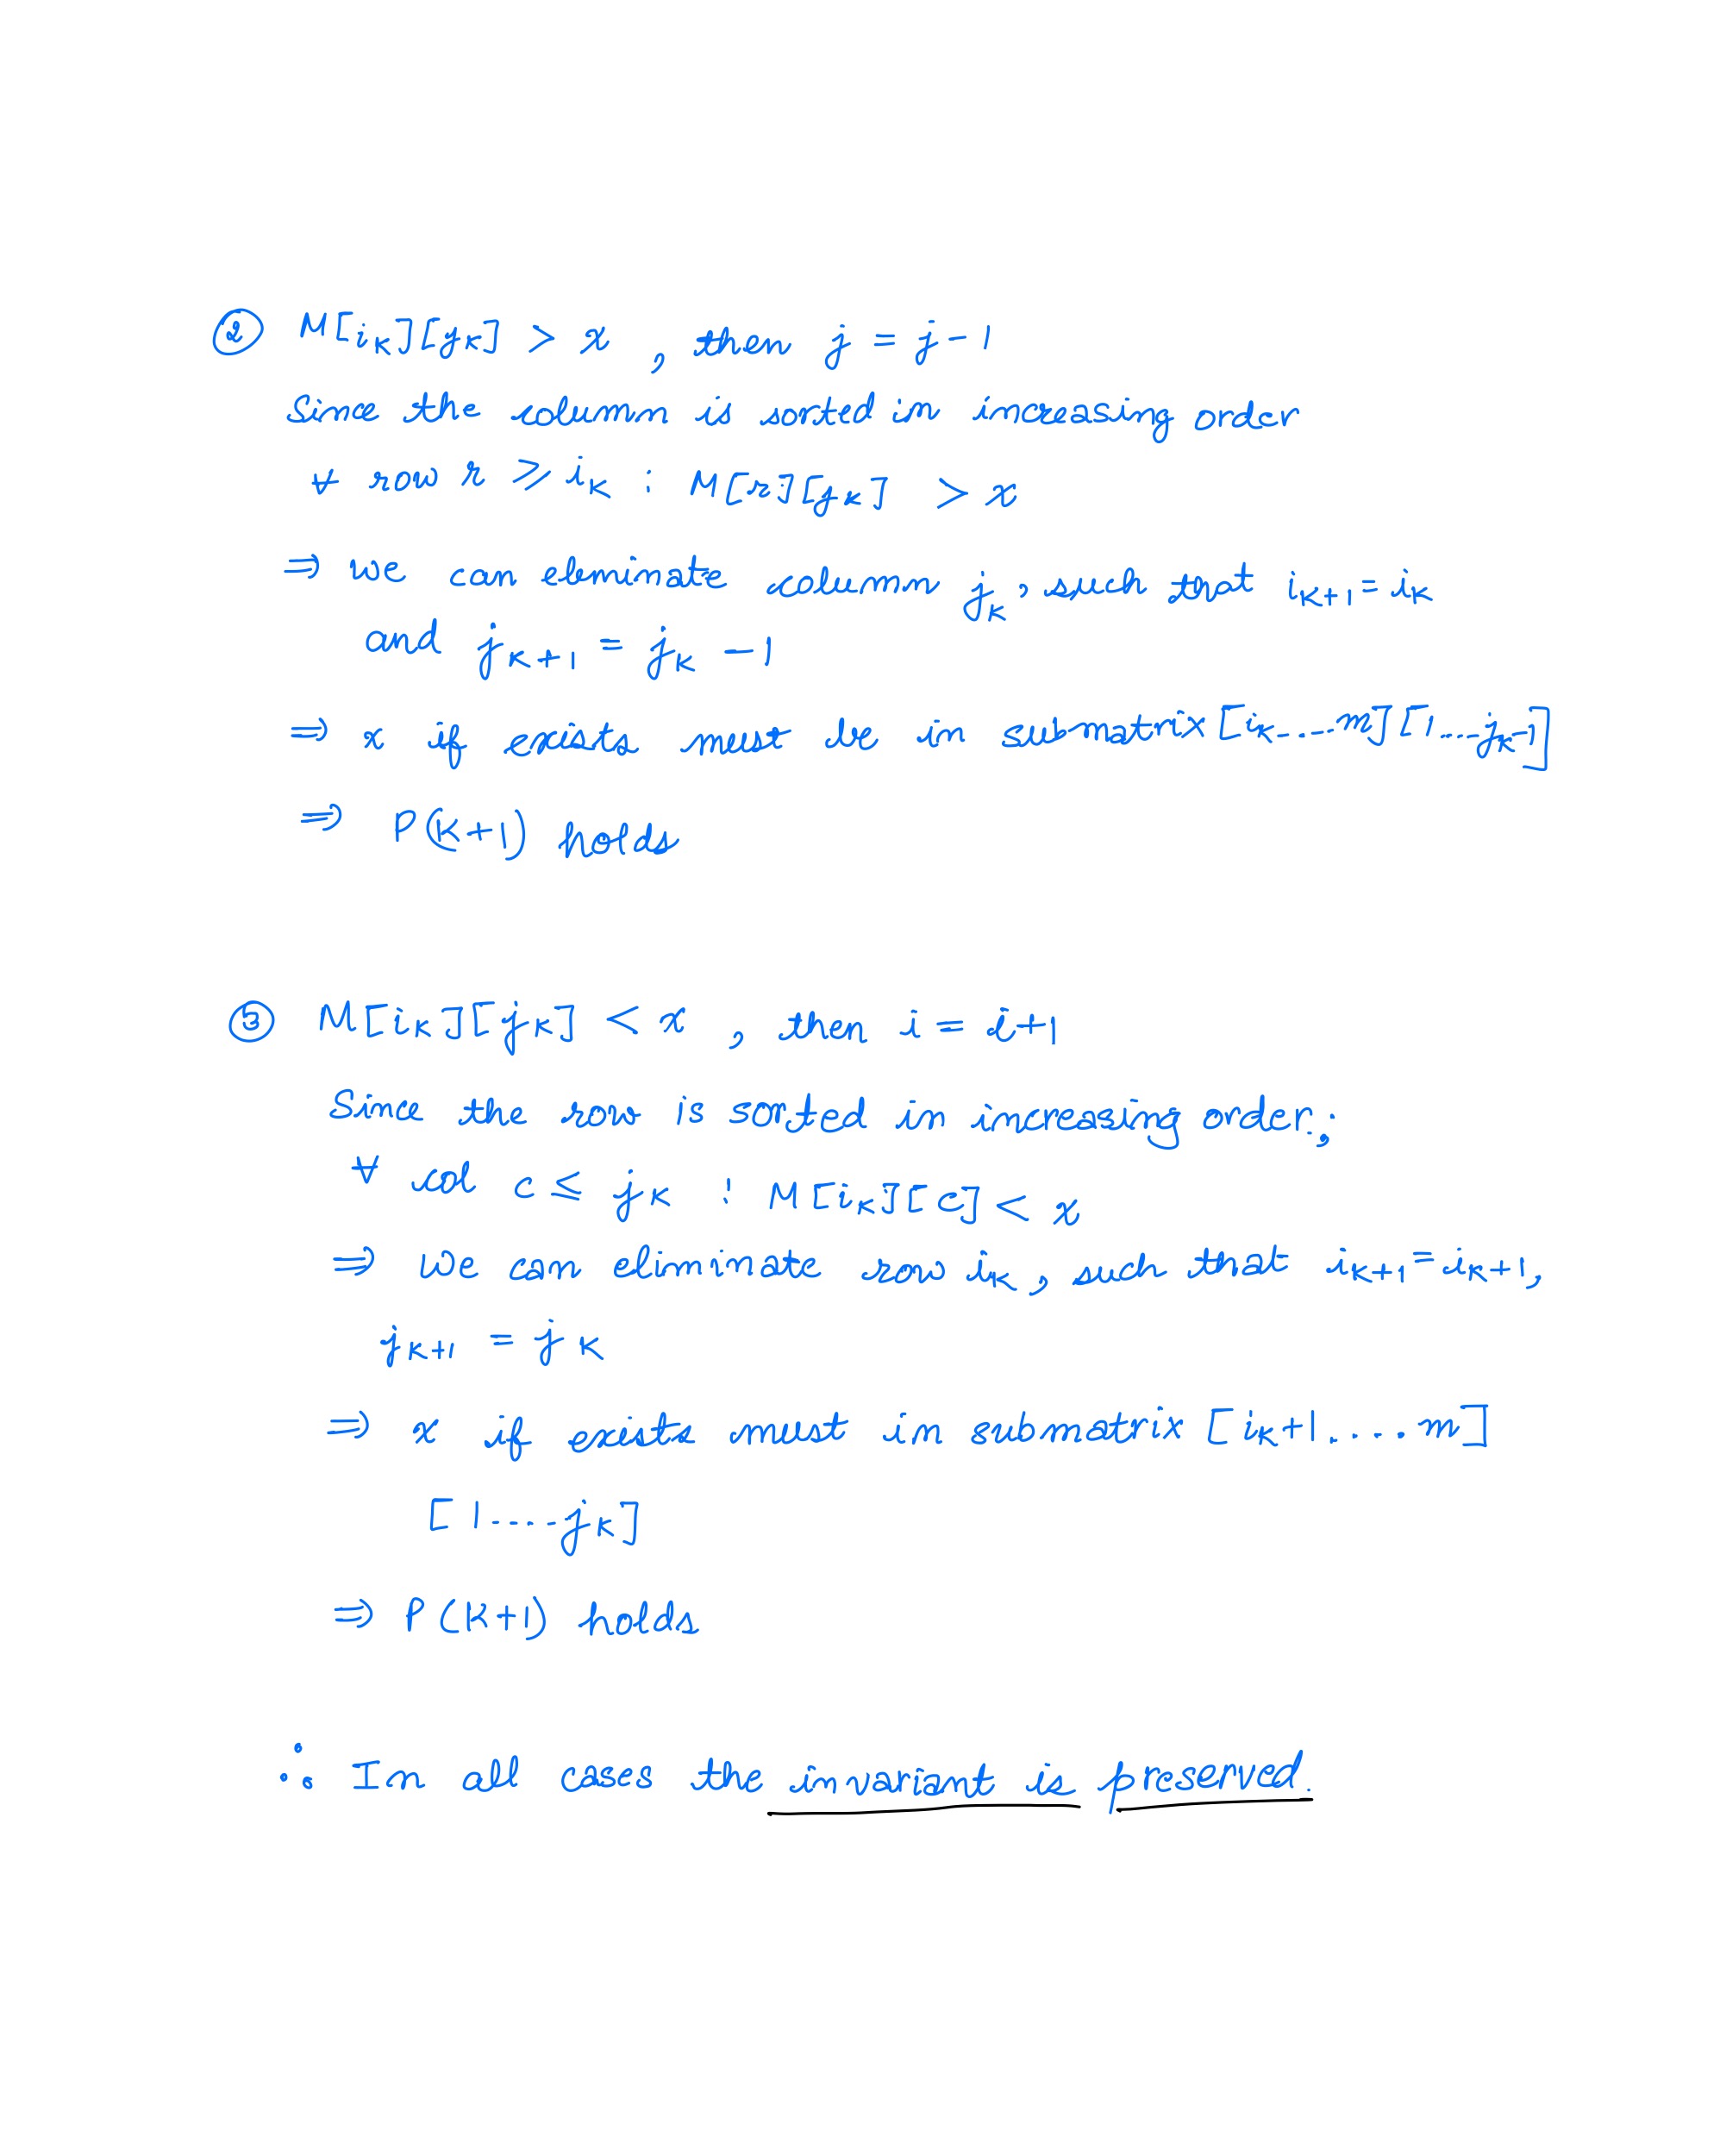 ② M[i_K][j_K] > x , then j = j - 1
Since the column is sorted in increasing order
∀ row r ⩾ i_K : M[r][j_K] > x
⇒ we can eleminate column j_K, such that i_{K+1} = i_K
and j_{K+1} = j_K - 1
⇒ x if exists must be in submatrix [i_K-....m][1....j_K-1]
⇒ P(K+1) holds
③ M[i_K][j_K] < x , then i = i+1
Since the row is sorted in increasing order;
∀ col c ≤ j_K : M[i_K][c] < x
⇒ we can eliminate row i_K, such that i_{K+1} = i_{K+1},
j_{K+1} = j_K
⇒ x if exists must in submatrix [i_K+1....m]
[1....j_K]
⇒ P(K+1) holds
∴ In all cases the invariant is preserved.